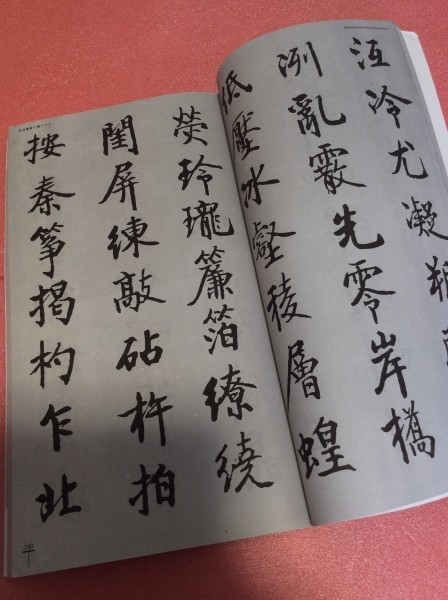 沍冷尤凝瓶
冽亂霰先零岸橋
低壓冰壑稜層蝗
熒玲瓏簾箔繚繞
閨屏練敲砧杵拍
按秦箏揭杓乍北
240